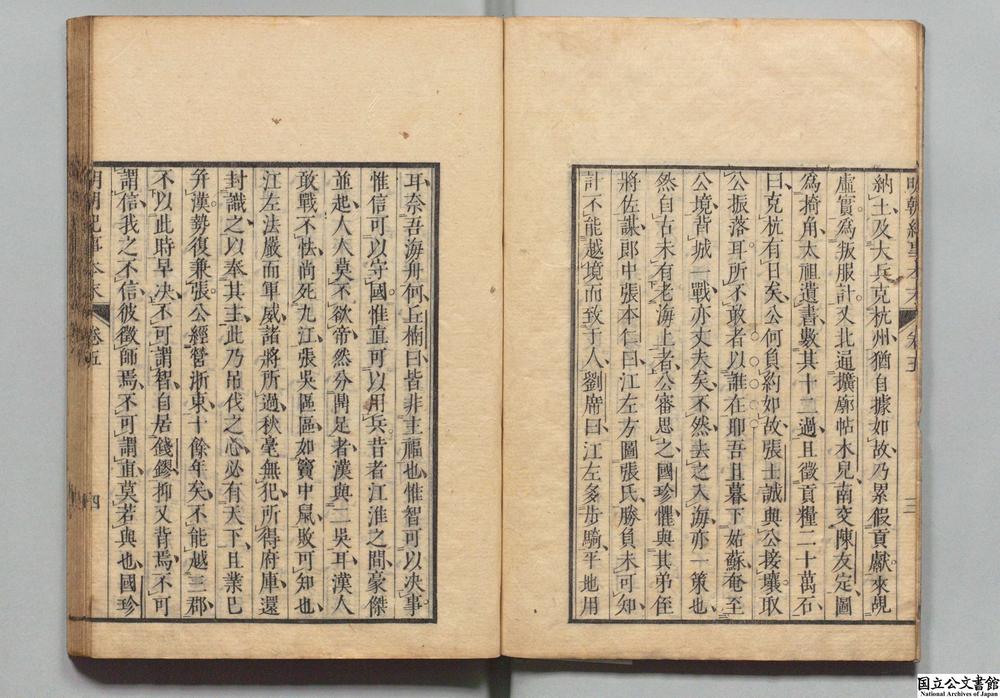 明朝紀事本末 卷五 三
納土及大兵克杭州猶自據如故乃累假貢獻來覘
虛實為叛服計又北通擴廓帖木兒南交陳友定圖
為掎角太祖遺書數其十二過且徵貢糧二十萬石
曰克杭有日矣公何負約如故張士誠與公接壤取
公振落耳所不敢者以誰在聊吾且暮下姑蘇奄至
公境背城一戰亦丈夫矣不然去之大海亦一策也
然自古未有老海上者公審思之國珍懼與其弟侄
將佐謀郎中張本仁曰江左方圖張氏勝負未可知
計不能越境而致于人劉庸曰江左多步騎平地用
耳奈吾海舟何丘楠曰皆非主福也惟智可以决事
惟信可以守國惟直可以用兵昔者江淮之間豪傑
並起人人莫不欲帝然分鼎足者漢與二吳耳漢人
敢戰不怯尚死九江張吳區區如竇中鼠敗可知也
江左法嚴而軍威諸將所過秋毫無犯所得府庫還
封識之以奉其主此乃弔伐之心必有天下且業已
并漢勢復兼張公經營浙東十餘年矣不能越三郡
不以此時早决不可謂智自居錢鏐抑又背焉不可
謂信我之不信彼徵師焉不可謂直莫若與也國珍
明朝紀事本末 卷五 四
国立公文書館
National Archives of Japan